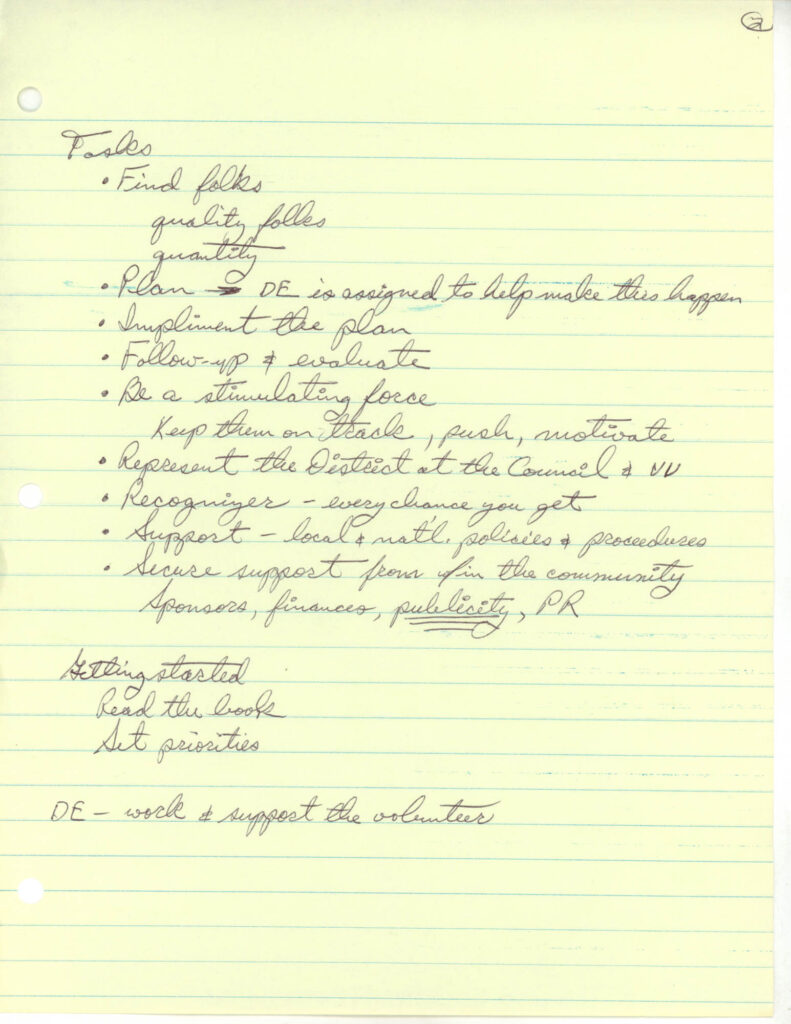 2
Tasks
• Find folks
quality folks
quantity
• Plan → DE is assigned to help make this happen
• Impliment the plan
• Follow-up & evaluate
• Be a stimulating force
Keep them on track, push, motivate
• Represent the District at the Council & VV
• Recognizer - every chance you get
• Support - local & nat'l. policies & procedures
• Secure support from in the community
Sponsors, finances, publicity, PR
Getting started
Read the book
Set priorities
DE - work & support the volunteer